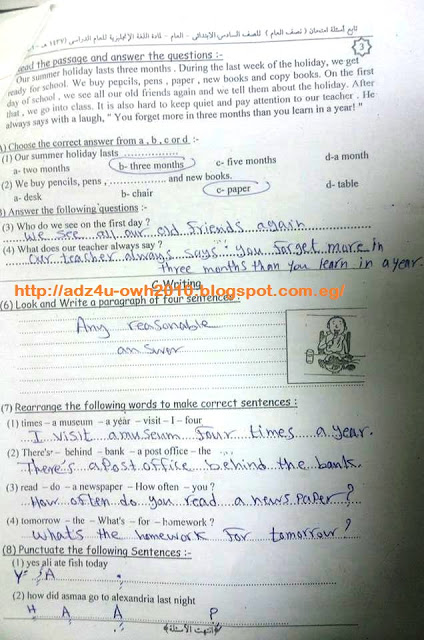 تابع أسئلة امتحان ( نصف العام ) للصف السادس الابتدائى - العام - مادة اللغة الإنجليزية للعام الدراسى ( ١٤٣٧ هـ -
3
Read the passage and answer the questions :-
Our summer holiday lasts three months . During the last week of the holiday, we get
ready for school. We buy pencils, pens , paper , new books and copy books. On the first
day of school , we see all our old friends again and we tell them about the holiday. After
that , we go into class. It is also hard to keep quiet and pay attention to our teacher . He
always says with a laugh, " You forget more in three months than you learn in a year! "
A) Choose the correct answer from a , b , c or d :-
(1) Our summer holiday lasts ................
a- two months b- three months c- five months d-a month
(2) We buy pencils, pens , ................ and new books.
a- desk b- chair c- paper d- table
) Answer the following questions :-
(3) Who do we see on the first day ?
We see all our old friends again
(4) What does our teacher always say ?
Our teacher always says: you forget more in
three months than you learn in a year.
C-Writing
http://adz4u-owh2010.blogspot.com.eg/
(6) Look and Write a paragraph of four sentences :
Any reasonable
answer
(7) Rearrange the following words to make correct sentences :
(1) times – a museum – a year – visit – I – four
I visit a museum four times a year.
(2) There's – behind – bank – a post office – the
There's a post office behind the bank.
(3) read – do – a newspaper – How often – you ?
How often do you read a newspaper?
(4) tomorrow – the – What's – for – homework ?
What's the homework for tomorrow?
(8) Punctuate the following Sentences :-
(1) yes ali ate fish today
Y , A .
(2) how did asmaa go to alexandria last night
H A A ?
انتهت الأسئلة